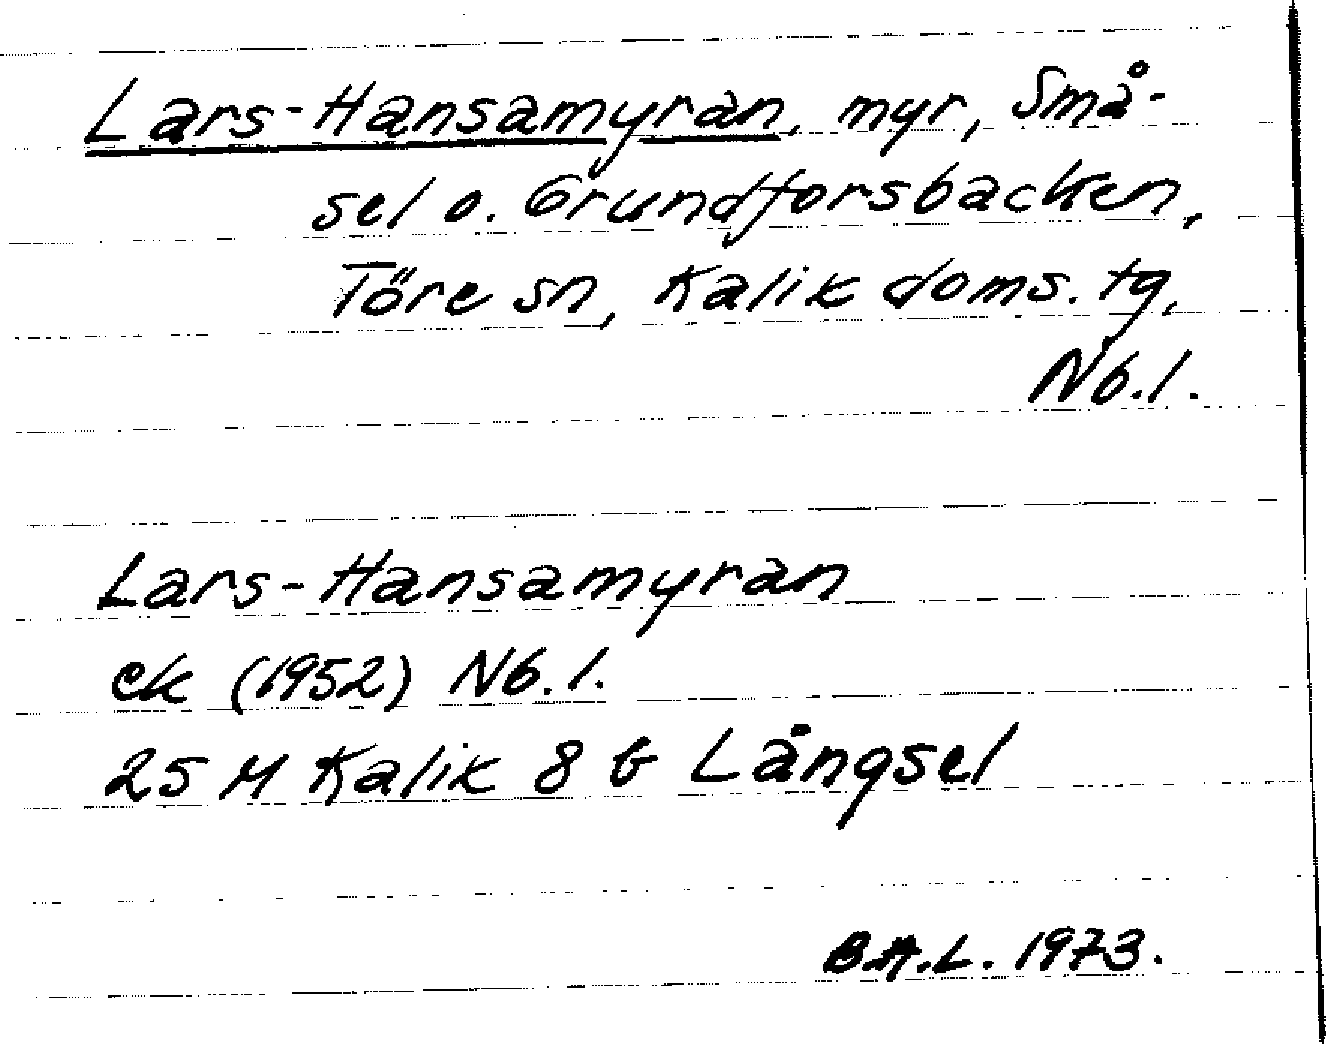 Lars-Hansamyran, myr, Små-
sel o. Grundforsbacken,
Töre sn, Kalix doms. tg,
Nb.l.
Lars-Hansamyran
ek (1952) Nb.l.
25 M Kalix 8 b Långsel
B.H.L. 1973.